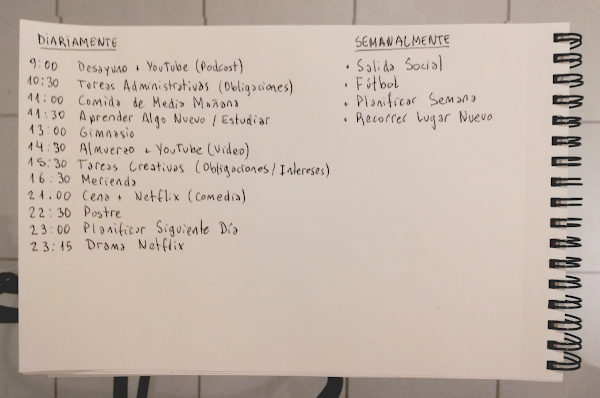 DIARIAMENTE
9:00 Desayuno + YouTube (Podcast)
10:30 Tareas Administrativas (Obligaciones)
11:00 Comida de Media Mañana
11:30 Aprender Algo Nuevo / Estudiar
13:00 Gimnasio
14:30 Almuerzo + YouTube (Video)
15:30 Tareas Creativas (Obligaciones / Intereses)
16:30 Merienda
21.00 Cena + Netflix (Comedia)
22:30 Postre
23:00 Planificar Siguiente Día
23:15 Drama Netflix
SEMANALMENTE
• Salida Social
• Fútbol
• Planificar Semana
• Recorrer Lugar Nuevo